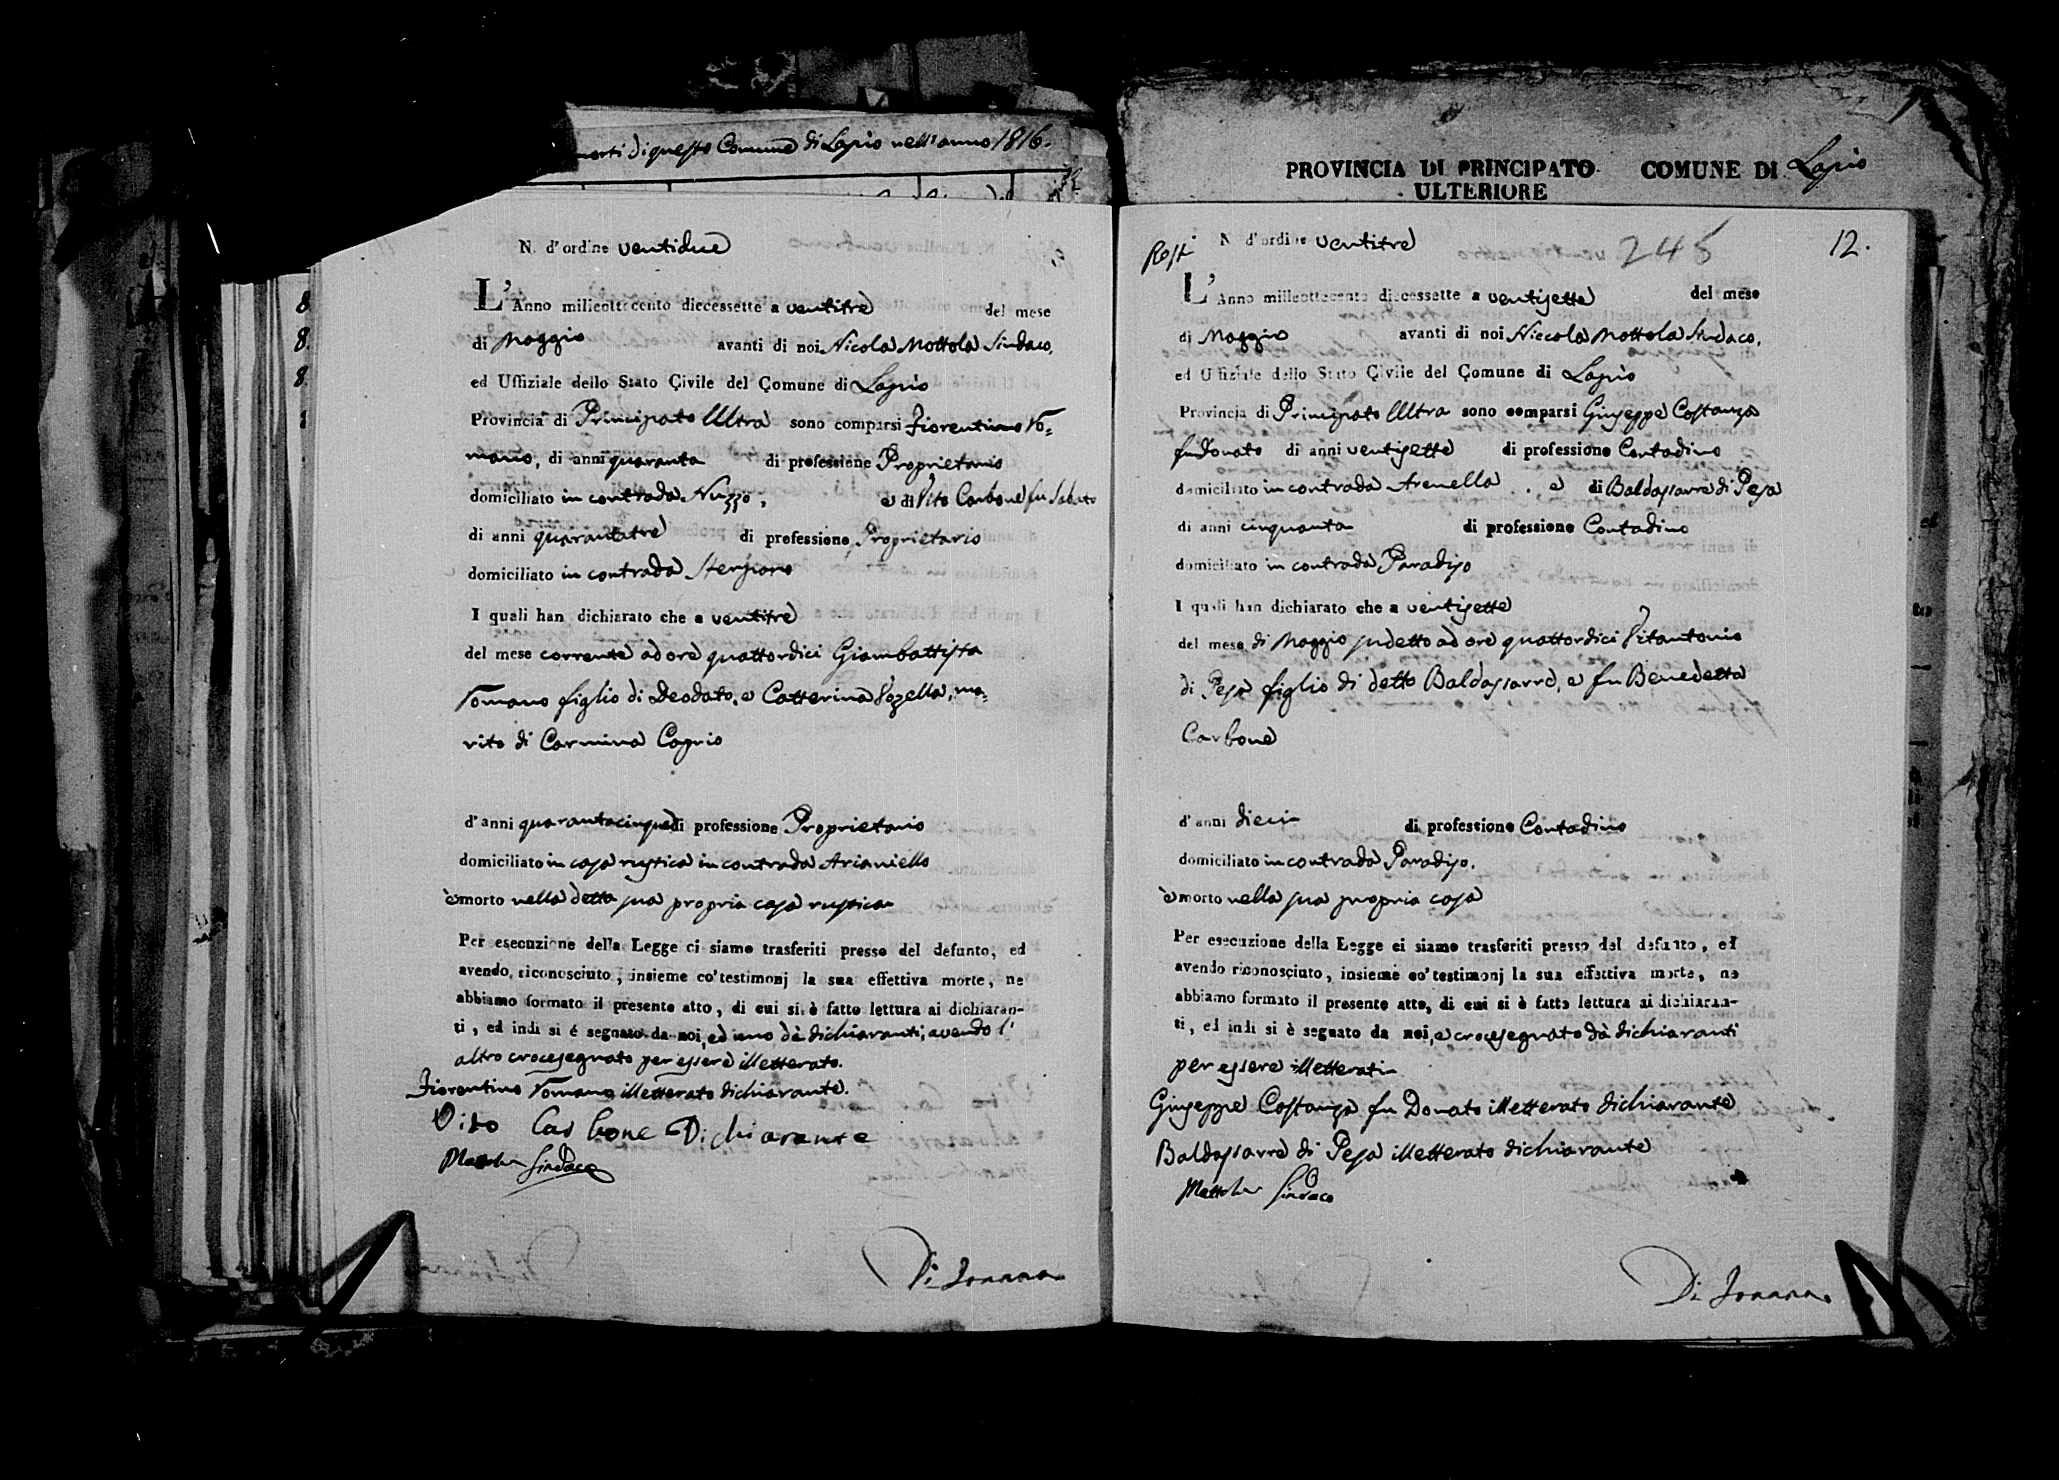 morti di questo Comune di Lapio nell'anno 1816.
8
8.
8.
N. d'ordine ventidue
L'Anno milleottocento diecessette a ventitre del mese
di Maggio avanti di noi Nicola Mottola Sindaco,
ed Uffiziale dello Stato Civile del Comune di Lapio
Provincia di Principato Ultra sono comparsi Fiorentino Ro=
mano, di anni quaranta di professione Proprietario
domiciliato in contrada Nuzzo, e di Vito Carbone fu Sabato
di anni quarantatre di professione Proprietario
domiciliato in contrada
I quali han dichiarato che a ventitre
del mese corrente ad ore quattordici Giambattista
Romano figlio di Deodato, e Catterina ma-
rito di Carmina Caprio
d'anni quarantacinque di professione Proprietario
domiciliato in casa rustica in contrada Arianiello
è morto nella detta sua propria casa rustica
Per esecuzione della Legge ci siamo trasferiti presso del defunto, ed
avendo riconosciuto, insieme co' testimonj la sua effettiva morte, ne
abbiamo formato il presente atto, di cui si è fatto lettura ai dichiaran-
ti, ed indi si é segnato da noi, ed uno dè dichiaranti, avendo l'
altro crocesegnato per essere illetterato.
Fiorentino Romano illetterato dichiarante.
Vito Carbone Dichiarante
Mottola Sindaco
PROVINCIA DI PRINCIPATO COMUNE DI Lapio
ULTERIORE
N. d'ordine ventitre 245 12.
L'Anno milleottocento diecessette a ventisette del mese
di Maggio avanti di noi Niccola Mottola Sindaco,
ed Uffiziale dello Stato Civile del Comune di Lapio
Provincia di Principato Ultra sono comparsi Giuseppe Costanza
fu Donato di anni ventisette di professione Contadino
domiciliato in contrada Arenella, e di Baldassarre di Pesa
di anni cinquanta di professione Contadino
domiciliato in contrada Paradiso
I quali han dichiarato che a ventisette
del mese di Maggio sudetto ad ore quattordici Vitantonio
di Pesa figlio di detto Baldassarre, e fu Benedetta
Carbone
d'anni dieci di professione Contadino
domiciliato in contrada Paradiso.
è morto nella sua propria casa
Per esecuzione della Legge ci siamo trasferiti presso del defunto, ed
avendo riconosciuto, insieme co' testimonj la sua effettiva morte, ne
abbiamo formato il presente atto, di cui si è fatta lettura ai dichiaran-
ti, ed indi si è segnato da noi, e crocesegnato dà dichiaranti
per essere illetterati
Giuseppe Costanza fu Donato illetterato dichiarante
Baldassarre di Pesa illetterato dichiarante
Mottola Sindaco